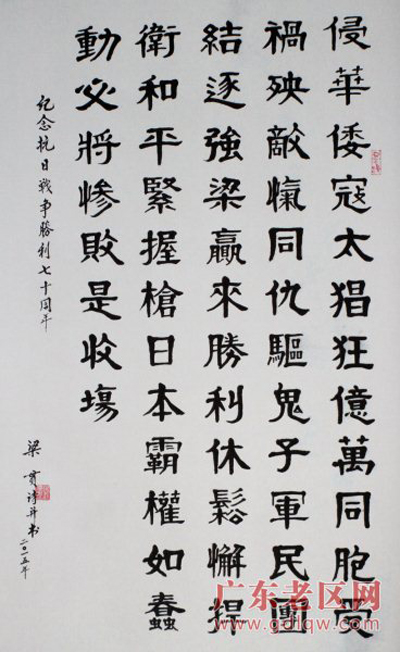 侵華倭寇太猖狂億萬同胞受
禍殃敵愾同仇驅鬼子軍民團
結逐強梁贏來勝利休鬆懈捍
衛和平緊握槍日本霸權如蠢
動必將慘敗是收場
纪念抗日戰争勝利七十周年
梁 诗并书
二〇一五年
广东老区网
www.gdlqw.com